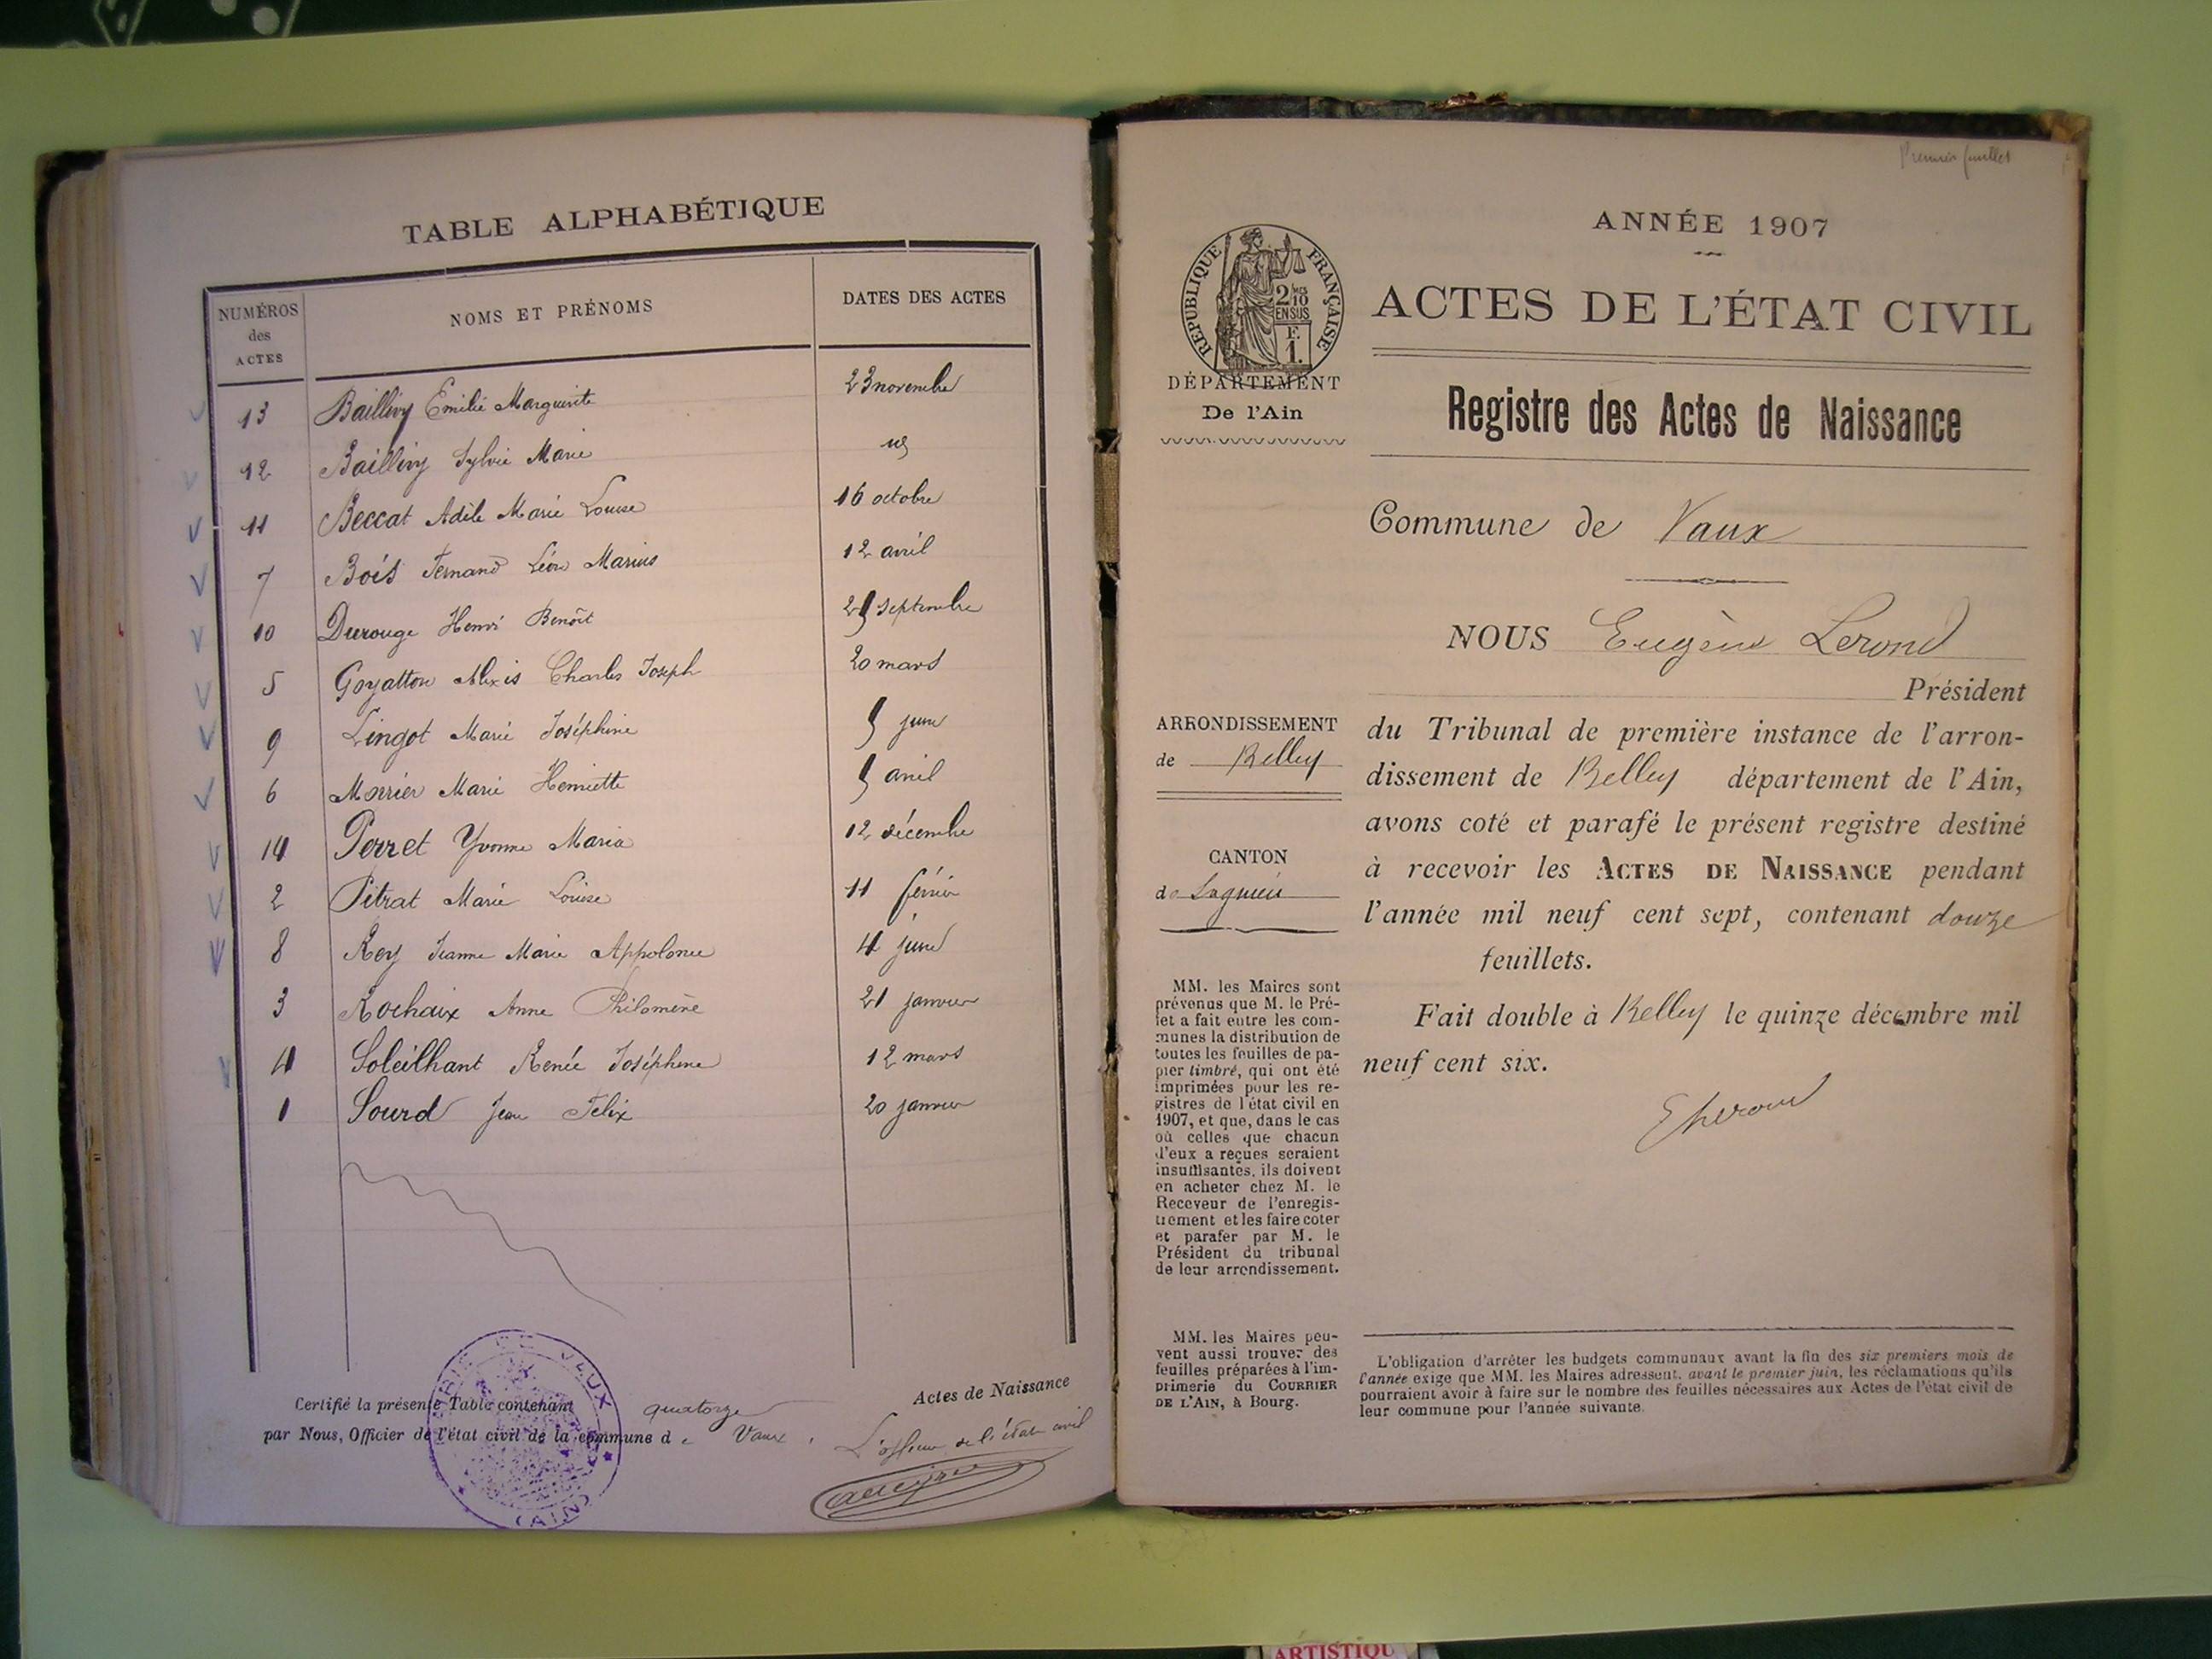 TABLE ALPHABÉTIQUE
NUMÉROS des ACTES NOMS ET PRÉNOMS DATES DES ACTES
13 Baillivy Emilie Marguerite 23 novembre
12 Baillivy Sylvie Marie
11 Beccat Adèle Marie Louise 16 octobre
7 Bois Fernand Léon Marius 12 avril
10 Durouge Henri Benoît septembre
5 Goyatton Alexis Charles Joseph 20 mars
9 Lingot Marie Joséphine 9 juin
6 Marie Henriette 9 avril
14 Perret Yvonne Maria 12 décembre
2 Pitrat Marie Louise 11 février
8 Rey Jeanne Marie Appolonie 4 juin
3 Rochaix Anne Philomène 21 janvier
4 Soleilhant Renée Joséphine 12 mars
1 Sourd Jean Felix 20 janvier
Certifié la présente Table contenant quatorze Actes de Naissance
par Nous, Officier de l'état civil de la commune de Vaux.
L'officier de l'état civil
MAIRIE DE VAUX
(AIN)
Premier feuillet
ANNÉE 1907
RÉPUBLIQUE FRANÇAISE
2/10 MES
EN SUS
F.
1.
ACTES DE L'ÉTAT CIVIL
DÉPARTEMENT
De l'Ain
Registre des Actes de Naissance
Commune de Vaux
NOUS Eugène Lerond
Président
ARRONDISSEMENT
de Belley
du Tribunal de première instance de l'arron-
dissement de Belley département de l'Ain,
avons coté et parafé le présent registre destiné
CANTON
de Lagnieu
à recevoir les ACTES DE NAISSANCE pendant
l'année mil neuf cent sept, contenant douze
feuillets.
Fait double à Belley le quinze décembre mil
neuf cent six.
E Lerond
MM. les Maires sont
prévenus que M. le Pré-
fet a fait entre les com-
munes la distribution de
toutes les feuilles de pa-
pier timbré, qui ont été
imprimées pour les re-
gistres de l'état civil en
1907, et que, dans le cas
où celles que chacun
d'eux a reçues seraient
insuffisantes, ils doivent
en acheter chez M. le
Receveur de l'enregis-
trement et les faire coter
et parafer par M. le
Président du tribunal
de leur arrondissement.
MM. les Maires peu-
vent aussi trouver des
feuilles préparées à l'im-
primerie du COURRIER
DE L'AIN, à Bourg.
L'obligation d'arrêter les budgets communaux avant la fin des six premiers mois de
l'année exige que MM. les Maires adressent, avant le premier juin, les réclamations qu'ils
pourraient avoir à faire sur le nombre des feuilles nécessaires aux Actes de l'état civil de
leur commune pour l'année suivante.
ARTISTIQU